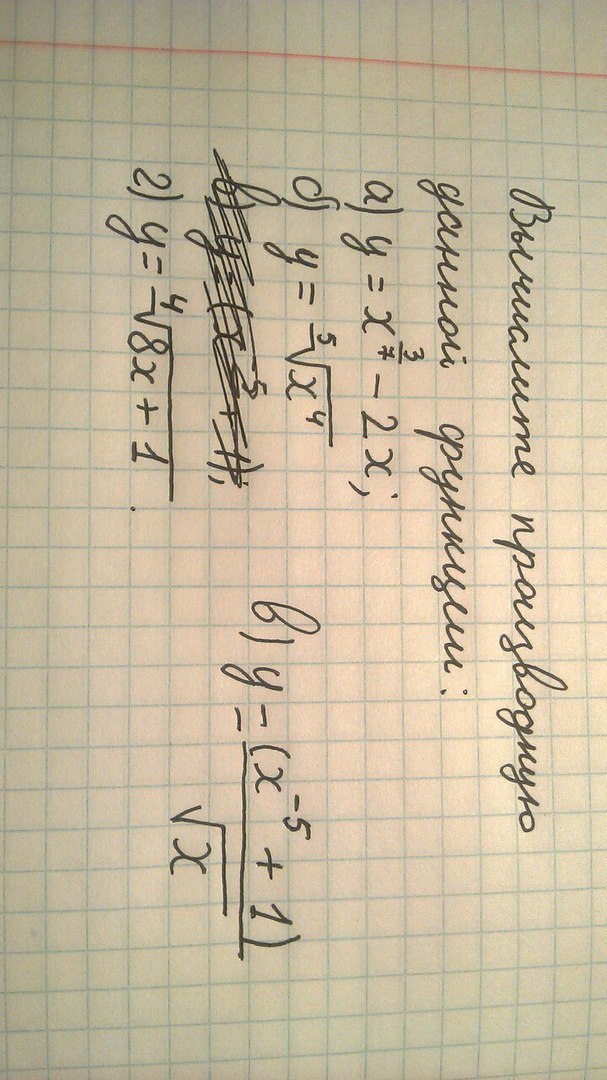 Вычислите производную
данной функции:
а) y = x^(3/7) − 2x;
б) y = ⁵√(x⁴)
в) y = (x⁻⁵ + 1);
г) y = ⁴√(8x + 1).
в) y = (x⁻⁵ + 1) / √x